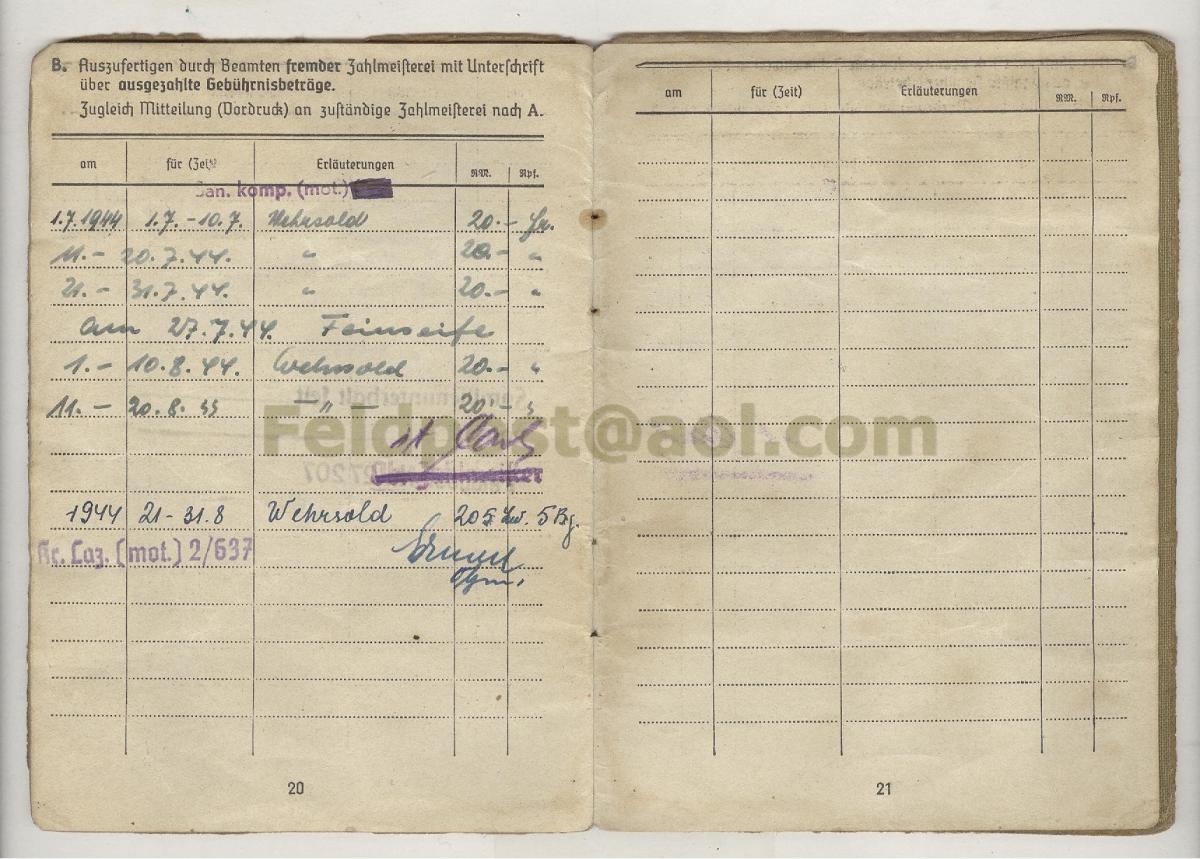 B. Auszufertigen durch Beamten fremder Zahlmeisterei mit Unterschrift
über ausgezahlte Gebührnisbeträge.
Zugleich Mitteilung (Vordruck) an zuständige Zahlmeisterei nach A.
am für (Zeit) Erläuterungen RM. Rpf.
San. komp. (mot.)
1.7.1944 1.7. - 10.7. Wehrsold 20.- Fr.
11. - 20.7.44. " 20.- "
21. - 31.7.44. " 20.- "
am 27.7.44. Feinseife
1. - 10.8.44. Wehrsold 20.- "
11. - 20.8.44 - " - 20.- "
Feldpost@aol.com
1944 21 - 31.8 Wehrsold 20
Kr. Laz. (mot.) 2/637
20
am für (Zeit) Erläuterungen RM. Rpf.
21